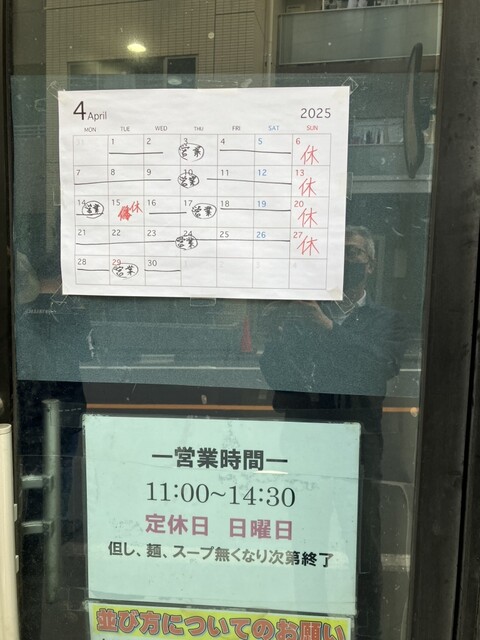 4 April 2025
MON TUE WED THU FRI SAT SUN
1 2 3 4 5 6
営業 休
7 8 9 10 11 12 13
営業 休
14 15 16 17 18 19 20
営業 休 営業 休
21 22 23 24 25 26 27
営業 休
28 29 30
営業
ー営業時間ー
11:00~14:30
定休日 日曜日
但し、麺、スープ無くなり次第終了
並び方についてのお願い